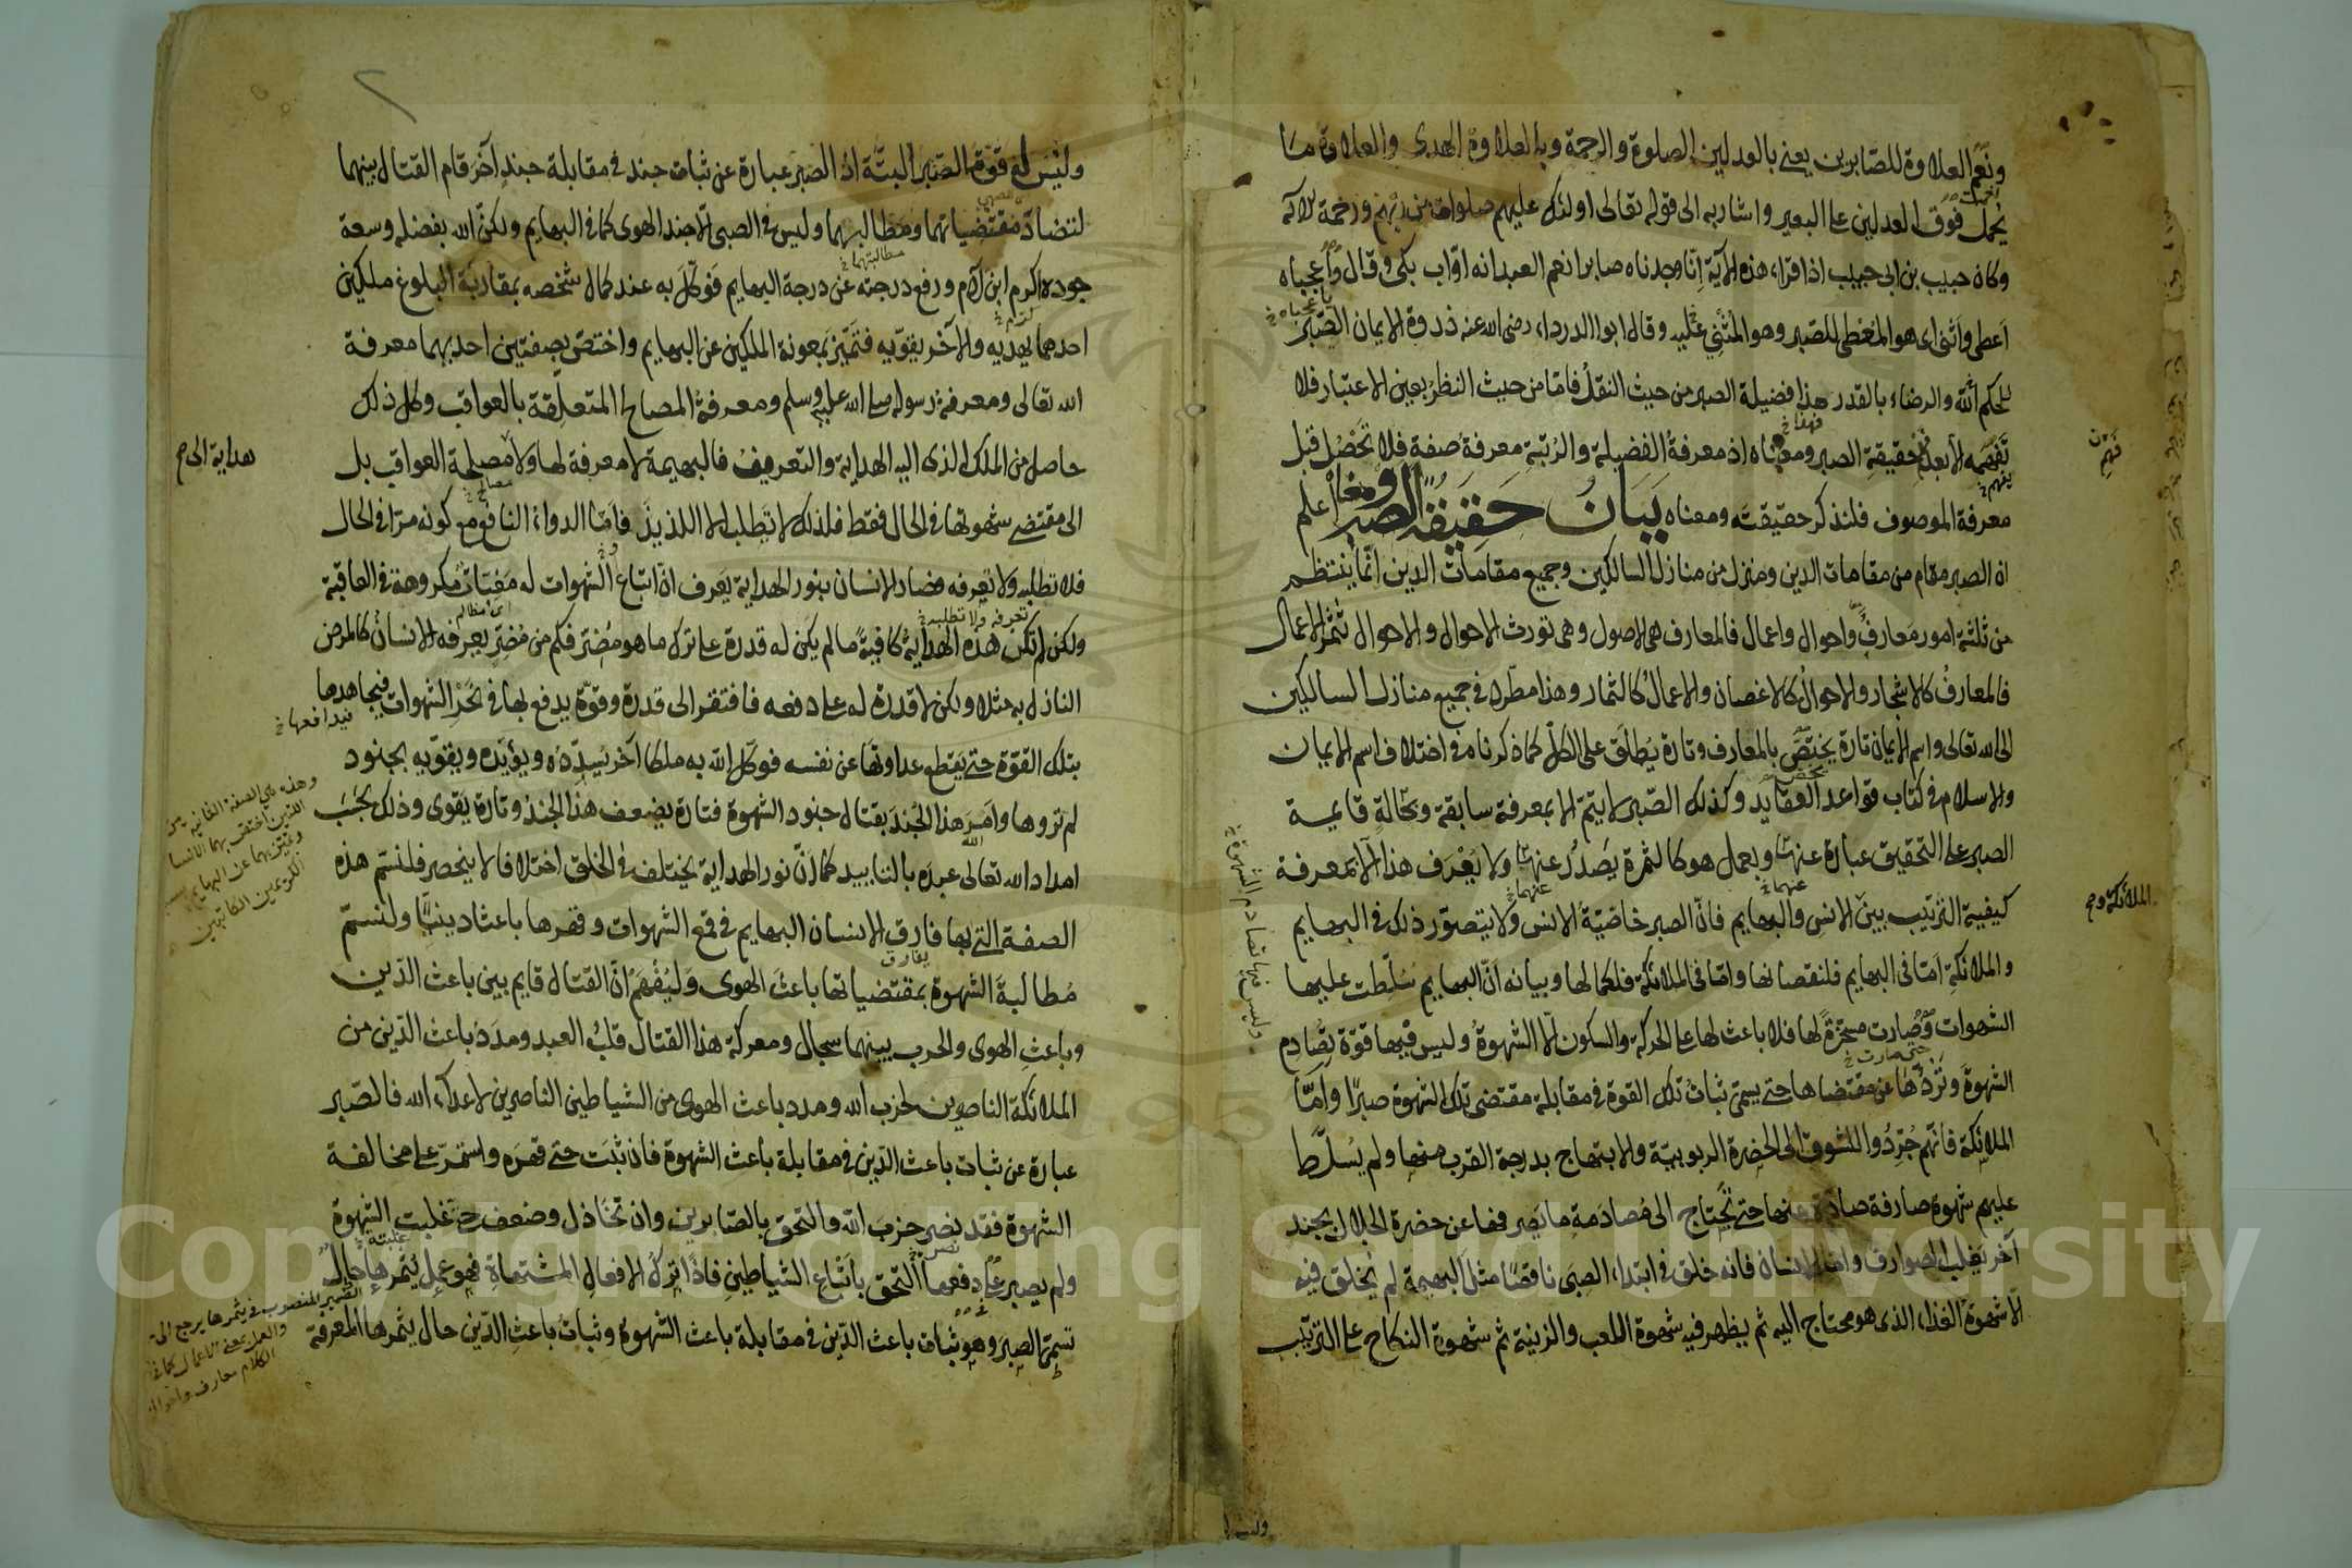 ونعم العلاوة للصابرين يعنى بالعدلين الصلوة والرحمة وبالعلاوة الهدى والعلاوة ما
يحمل فوق العدلين على البعير واشار به الى قوله تعالى اولئك عليهم صلوات من ربهم ورحمة الآية
وكان حبيب بن ابى حبيب اذا قراء هذه الآية انا وجدناه صابرا نعم العبد انه اواب بكى وقال واعجباه
اعطى واثنى اى هو المعطى للصبر وهو المثنى عليه وقال ابوا الدرداء رضى الله عنه ذروة الايمان الصبر
للحكم الله والرضاء بالقدر هذا فضيلة الصبر من حيث النقل فاما من حيث النظر بعين الاعتبار فلا
تفهمه الا بعد فهم حقيقة الصبر ومعناه اذ معرفة الفضيلة والرتبة معرفة صفة فلا تحصل قبل
معرفة الموصوف فلنذكر حقيقته ومعناه بيان حقيقة الصبر ومعناه اعلم
ان الصبر مقام من مقامات الدين ومنزل من منازل السالكين وجميع مقامات الدين انما ينتظم
من ثلثة امور معارف واحوال واعمال فالمعارف هى الاصول وهى تورث الاحوال والاحوال تثمر الاعمال
فالمعارف كالاشجار والاحوال كالاغصان والاعمال كالثمار وهذا مطرد فى جميع منازل السالكين
الى الله تعالى واسم الايمان تارة يختص بالمعارف وتارة يطلق على الكل كما ذكرناه فى اختلاف اسم الايمان
والاسلام فى كتاب قواعد العقايد وكذلك الصبر لا يتم الا بمعرفة سابقة وبحالة قايمة
الصبر على التحقيق عبارة عنها وبعمل هو كالثمرة يصدر عنها ولا يعرف هذا الا بمعرفة
كيفية الترتيب بين الانس والبهايم فان الصبر خاصية الانس ولا يتصور ذلك فى البهايم
والملائكة اما فى البهايم فلنقصانها واما فى الملائكة فلكمالها وبيانه ان البهايم سلطت عليها
الشهوات وصارت مسخرة لها فلا باعث لها على الحركة والسكون الا الشهوة وليس فيها قوة تصادم
الشهوة وتردها عن مقتضاها حتى يسمى ثبات تلك القوة فى مقابلة مقتضى تلك الشهوة صبرا واما
الملائكة فانهم جردوا للشوق الى الحضرة الربوبية والابتهاج بدرجة القرب منها ولم يسلط
عليهم شهوة صارفة صادة عنها حتى تحتاج الى مصادمة ما يصرفها عن حضرة الجلال بجند
آخر يغلب الصوارف واما الانسان فانه خلق فى ابتداء الصبى ناقصا مثل البهيمة لم يخلق فيه
الا شهوة الغذاء الذى هو محتاج اليه ثم يظهر فيه شهوة اللعب والزينة ثم شهوة النكاح على الترتيب
الملائكة وم
وليس فيها تصادم الشهوة خ
وليس له قوة الصبر البتة اذ الصبر عبارة عن ثبات جند فى مقابلة جند آخر قام القتال بينهما
لتضاد مقتضياتهما ومطالبهما وليس فى الصبى الا جند الهوى كما فى البهايم ولكن الله بفضله وسعة
جوده اكرم ابن آدم ورفع درجته عن درجة البهايم فوكل به عند كمال شخصه بمقاربة البلوغ ملكين
احدهما يهديه والآخر يقويه فتميز بمعونة الملكين عن البهايم واختص بصفتين احديهما معرفة
الله تعالى ومعرفة رسوله صلى الله عليه وسلم ومعرفة المصالح المتعلقة بالعواقب وكل ذلك
حاصل من الملك الذى اليه الهداية والتعريف فالبهيمة لا معرفة لها ولا مصلحة العواقب بل
الى مقتضى شهوتها فى الحال فقط فلذلك لا تطلب الا اللذيذ فاما الدواء النافع مع كونه مرا فى الحال
فلا تطلبه ولا تعرفه فصار الانسان بنور الهداية يعرف ان اتباع الشهوات له مغبات مكروهة فى العاقبة
ولكن لم تكن هذه الهداية كافية ما لم يكن له قدرة على ترك ما هو مضر فكم من مضر يعرفه الانسان كالمرض
النازل به مثلا ولكن لا قدرة له على دفعه فافتقر الى قدرة وقوة يدفع بها فى نحر الشهوات فيجاهدها
بتلك القوة حتى يقطع عداوتها عن نفسه فوكل الله به ملكا آخر يسدده ويؤيده ويقويه بجنود
لم تروها وامر هذا الجند بقتال جنود الشهوة فتارة يضعف هذا الجند وتارة يقوى وذلك بحسب
امداد الله تعالى عبده بالتاييد كما ان نور الهداية يختلف فى الخلق اختلافا لا ينحصر فلنسم هذه
الصفة التى بها فارق الانسان البهايم فى قمع الشهوات وقهرها باعثا دينيا ولنسم
مطالبة الشهوة بمقتضياتها باعث الهوى وليفهم ان القتال قايم بين باعث الدين
وباعث الهوى والحرب بينهما سجال ومعركة هذا القتال قلب العبد ومدد باعث الدين من
الملائكة الناصرين لحزب الله ومدد باعث الهوى من الشياطين الناصرين لاعداء الله فالصبر
عبارة عن ثبات باعث الدين فى مقابلة باعث الشهوة فان ثبت حتى قهره واستمر على مخالفة
الشهوة فقد نصر حزب الله والتحق بالصابرين وان تخاذل وضعف حتى غلبت الشهوة
ولم يصبر على دفعها التحق باتباع الشياطين فاذا ترك الافعال المشتهاة فهو عمل يثمرها حال
تسمى الصبر وهو ثبات باعث الدين فى مقابلة باعث الشهوة وثبات باعث الدين حال يثمرها المعرفة
هداية الى م
فيدافعها خ
Copyright © King Saud University